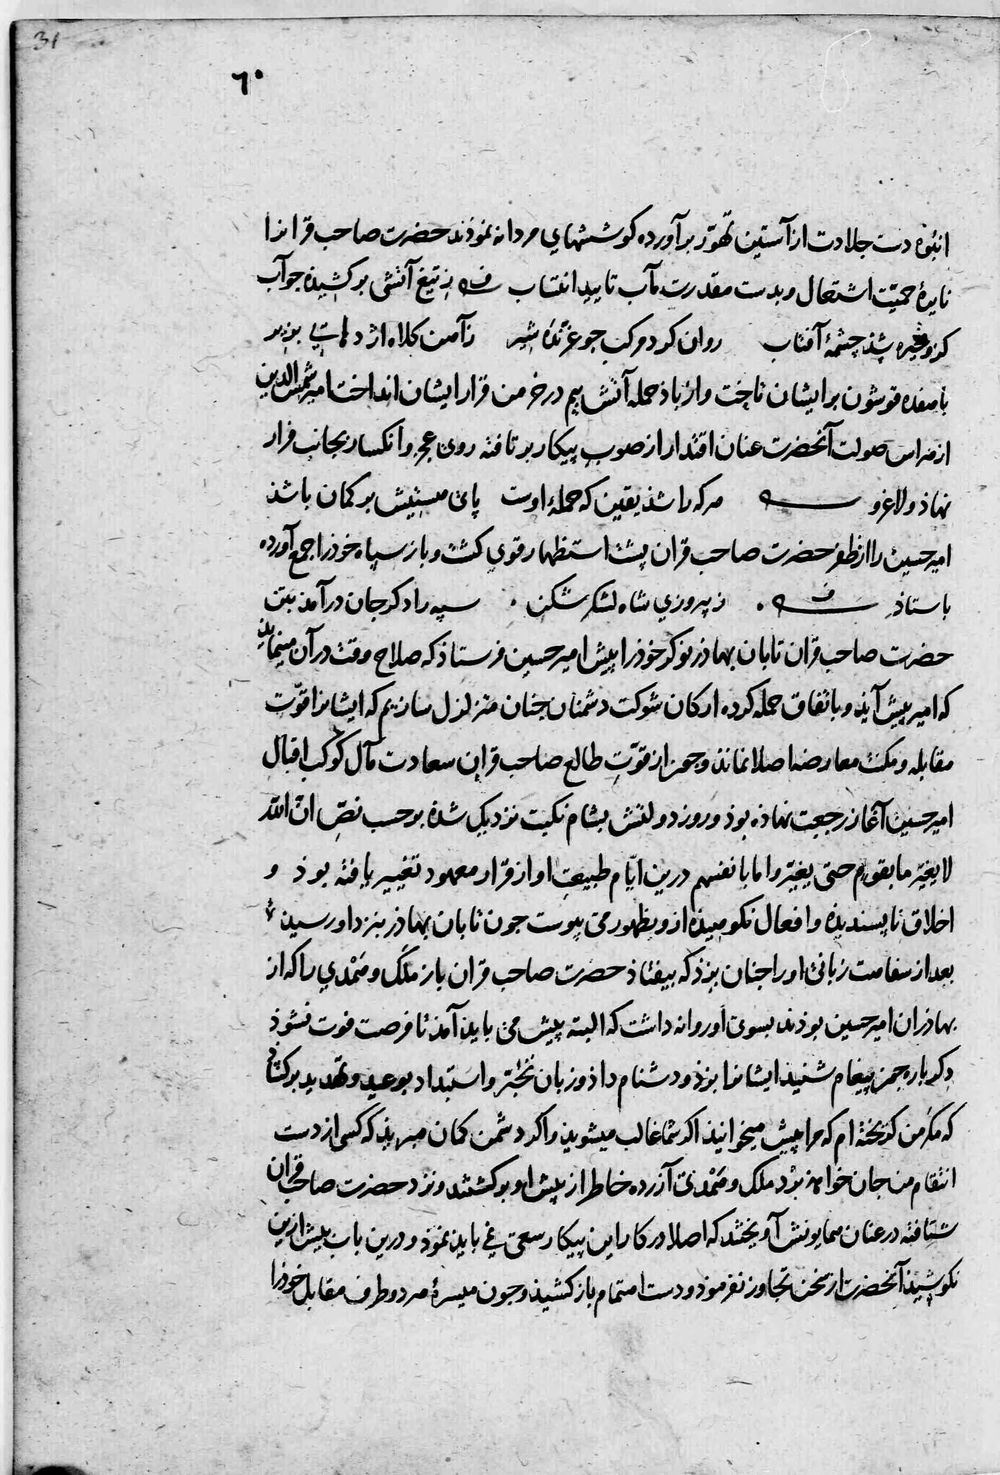 31
٦٠
انبوه دست جلادت از آستین تهوّر برآورده کوششهای مردانه نموذند حضرت صاحب قرانرا
نایرهٔ حمیّت اشتعال و بدست مقدرت مآب تایید انتساب بزد تیغ آتشی برکشیده جو آب
کزو خیره شذ چشمهٔ آفتاب روان کرد مرکب جو غرّنده شیر
با هفده قوشون برایشان تاخت و از باذ حمله آتش بیم در خرمن قرار ایشان انداخت امیر شمس الدین
از هراس صولت آنحضرت عنان اقتدار از صوب پیکار برتافته روی عجز و انکسار بجانب فرار
نهاذ ولا غرو هر که را شذ یقین که حمله اوست پای هستیش بر کمان باشذ
امیر حسین را از ظفر حضرت صاحب قران پشت استظهار قوی کشت و باز سپاه خوذ را جمع آورده
باستاذ ز پیروزی شاه لشکر شکن سپه را دکر جان درآمذ بتن
حضرت صاحب قران تابان بهاذر نوکر خوذ را پیش امیر حسین فرستاذ که صلاح وقت در آن مینمایذ
که امیر پیش آیذ و باتفاق حمله کرده ارکان شوکت دشمنان جنان متزلزل سازیم که ایشانرا قوّت
مقابله و مکنت معارضه اصلا نمانذ و جون از قوّت طالع صاحب قران سعادت مآل کوکب اقبال
امیر حسین آغاز رجعت نهاذه بوذ و روز دولتش بشام نکبت نزدیک شذه بر حسب نصّ انّ الله
لا یغیّر ما بقوم حتی یغیّروا ما بانفسهم درین ایّام طبیعت او از قرار معهود تغییر یافته بوذ و
اخلاق ناپسندیذه و افعال نکوهیذه ازو بظهور می پیوست جون تابان بهاذر بنزد او رسیذ
بعد از سفاهت زبانی او را جنان بزذ که بیفتاذ حضرت صاحب قران باز ملک و همدی را که از
بهاذران امیر حسین بوذند بسوی او روانه داشت که البته پیش می بایذ آمذ تا فرصت فوت نشوذ
دکرباره جون پیغام شنیذ ایشانرا بزذ و دشنام داذ و زبان تجبّر و استبداد بوعید و تهدید برکشاذ
که مکر من کریخته ام که مرا پیش میخوانیذ اکر شما غالب میشویذ و اکر دشمن کمان مبریذ که کسی از دست
انتقام من جان خواهذ برد ملک و همدی آزرده خاطر از پیش او برکشتند و نزد حضرت صاحب قران
شتافته در عنان همایونش آویختند که اصلا در کار این پیکار سعی نمی بایذ نموذ و درین باب بیش ازین
نکوشیذ آنحضرت از سخن تجاوز نفرموذ و دست اهتمام بازکشیذ و جون میسرهٔ هر دو طرف مقابل خوذ را